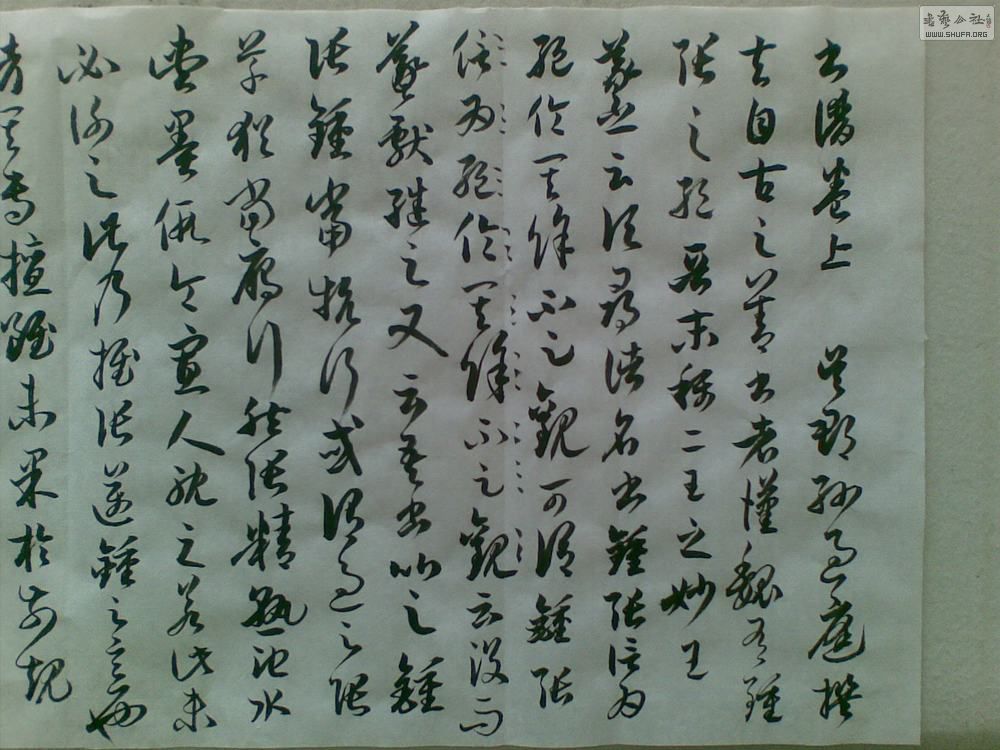 書譜卷上 吳郡孫過庭撰
夫自古之善書者漢魏有鍾
張之絕晉末稱二王之妙王
羲之云頃尋諸名書鍾張信為
絕倫其餘不足觀可謂鍾張
信為絕倫其餘不足觀云沒而
羲獻繼之又云吾書比之鍾
張鍾當抗行或謂過之張
草猶當鴈行然張精熟池水
盡墨假令寡人耽之若此未
必謝之此乃推張邁鍾之意也
考其專擅雖未果於前規
書藝公社
WWW.SHUFA.ORG